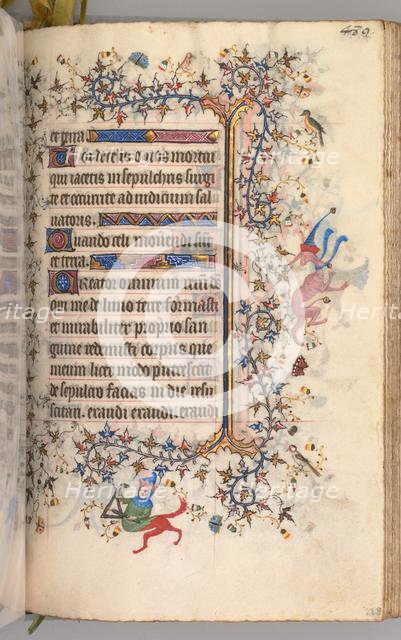 439.
et terra.
Audete vos qui mortui
qui iacetis in sepulchris surgi
te et occurrite ad iudicium sal
uatoris.
Quando celi mouendi sūt
et terra.
Creator omnium rerum de
qui me de limo terre formasti
et mirabiliter proprio san
guine redemisti corpus que
meum licet modo putrescat
de sepulcro facias in die resu
scitari. exaudi exaudi. exaudi
218
Heritage
Heritage
Heritage
Heritage
Heritage
Heritage